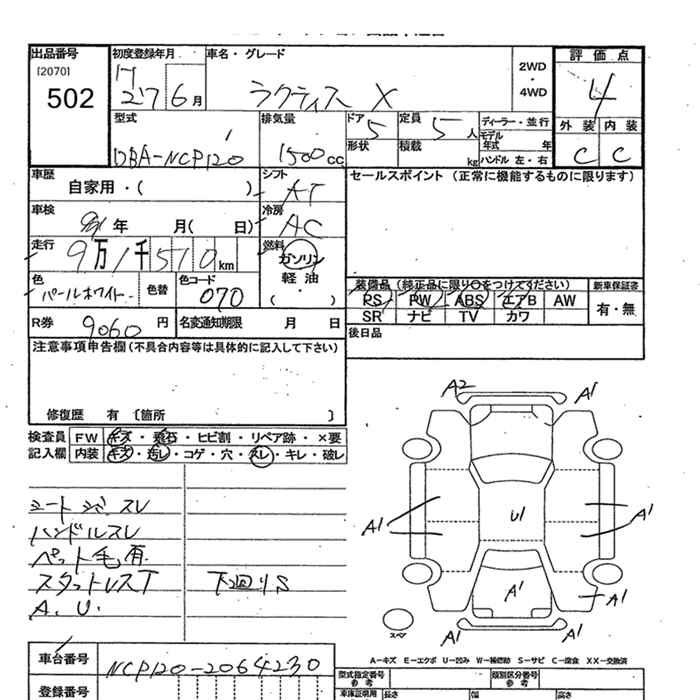 出品番号
[2070]
502
初度登録年月
27 6月
車名・グレード
ラクティス X
2WD
・
4WD
評価点
4
外装 内装
C C
型式
DBA-NCP120
排気量
1500cc
ドア
5
形状
定員
5人
積載
kg
ディーラー・並行
モデル
年式 年
ハンドル 左・右
車歴
自家用・( )
シフト
AT
セールスポイント(正常に機能するものに限ります)
車検
年 月( 日)
冷房
AC
走行
9万1千510km
燃料
ガソリン
軽油
( ・ )
色
パールホワイト
色替
色コード
070
装備品(純正品に限り○をつけてください)
新車保証書
PS PW ABS エアB AW
SR ナビ TV カワ
有・無
R券
9060円
名変通知期限 月 日
後日品
注意事項申告欄(不具合内容等は具体的に記入して下さい)
修復歴 有〔箇所 〕
検査員
記入欄
FW キズ・飛石・ヒビ割・リペア跡・×要
内装 キズ・汚レ・コゲ・穴・スレ・キレ・破レ
シートシミ スレ
ハンドルスレ
ペット毛有
スタットレスT
下回りS
A. U.
A2
A1
A1
U1
A1
A1
A1
A1
A1
スペア
A－キズ E－エクボ U－凹み W－補修跡 S－サビ C－腐食 XX－交換済
車台番号
NCP120-2064230
登録番号
型式指定番号
参考
類別区分番号
参考
車庫証明用
長さ
幅
高さ